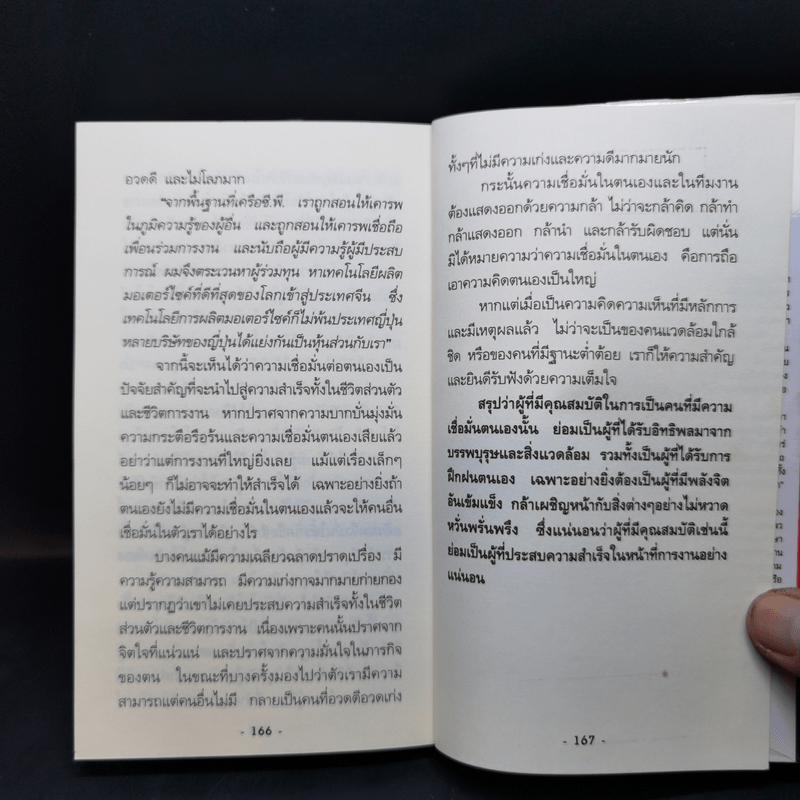 อวดดี และไม่โลภมาก
"จากพื้นฐานที่เครือซี.พี. เราถูกสอนให้เคารพ
ในภูมิความรู้ของผู้อื่น และถูกสอนให้เคารพเชื่อถือ
เพื่อนร่วมการงาน และนับถือผู้มีความรู้ผู้มีประสบ
การณ์ ผมจึงตระเวนหาผู้ร่วมทุน หาเทคโนโลยีผลิต
มอเตอร์ไซค์ที่ดีที่สุดของโลกเข้าสู่ประเทศจีน ซึ่ง
เทคโนโลยีการผลิตมอเตอร์ไซค์ก็ไม่พ้นประเทศญี่ปุ่น
หลายบริษัทของญี่ปุ่นได้แย่งกันเป็นหุ้นส่วนกับเรา"
จากนี้จะเห็นได้ว่าความเชื่อมั่นต่อตนเองเป็น
ปัจจัยสำคัญที่จะนำไปสู่ความสำเร็จทั้งในชีวิตส่วนตัว
และชีวิตการงาน หากปราศจากความบากบั่นมุ่งมั่น
ความกระตือรือร้นและความเชื่อมั่นตนเองเสียแล้ว
อย่าว่าแต่การงานที่ใหญ่ยิ่งเลย แม้แต่เรื่องเล็กๆ
น้อยๆ ก็ไม่อาจจะทำให้สำเร็จได้ เฉพาะอย่างยิ่งถ้า
ตนเองยังไม่มีความเชื่อมั่นในตนเองแล้วจะให้คนอื่น
เชื่อมั่นในตัวเราได้อย่างไร
บางคนแม้มีความเฉลียวฉลาดปราดเปรื่อง มี
ความรู้ความสามารถ มีความเก่งกาจมากมายก่ายกอง
แต่ปรากฏว่าเขาไม่เคยประสบความสำเร็จทั้งในชีวิต
ส่วนตัวและชีวิตการงาน เนื่องเพราะคนนั้นปราศจาก
จิตใจที่แน่วแน่ และปราศจากความมั่นใจในภารกิจ
ของตน ในขณะที่บางครั้งมองไปว่าตัวเรามีความ
สามารถแต่คนอื่นไม่มี กลายเป็นคนที่อวดดีอวดเก่ง
- 166 -
ทั้งๆที่ไม่มีความเก่งและความดีมากมายนัก
กระนั้นความเชื่อมั่นในตนเองและในทีมงาน
ต้องแสดงออกด้วยความกล้า ไม่ว่าจะกล้าคิด กล้าทำ
กล้าแสดงออก กล้านำ และกล้ารับผิดชอบ แต่นั่น
มิได้หมายความว่าความเชื่อมั่นในตนเอง คือการถือ
เอาความคิดตนเองเป็นใหญ่
หากแต่เมื่อเป็นความคิดความเห็นที่มีหลักการ
และมีเหตุผลแล้ว ไม่ว่าจะเป็นของคนแวดล้อมใกล้
ชิด หรือของคนที่มีฐานะต่ำต้อย เราก็ให้ความสำคัญ
และยินดีรับฟังด้วยความเต็มใจ
สรุปว่าผู้ที่มีคุณสมบัติในการเป็นคนที่มีความ
เชื่อมั่นตนเองนั้น ย่อมเป็นผู้ที่ได้รับอิทธิพลมาจาก
บรรพบุรุษและสิ่งแวดล้อม รวมทั้งเป็นผู้ที่ได้รับการ
ฝึกฝนตนเอง เฉพาะอย่างยิ่งต้องเป็นผู้ที่มีพลังจิต
อันเข้มแข็ง กล้าเผชิญหน้ากับสิ่งต่างๆอย่างไม่หวาด
หวั่นพรั่นพรึง ซึ่งแน่นอนว่าผู้ที่มีคุณสมบัติเช่นนี้
ย่อมเป็นผู้ที่ประสบความสำเร็จในหน้าที่การงานอย่าง
แน่นอน
- 167 -